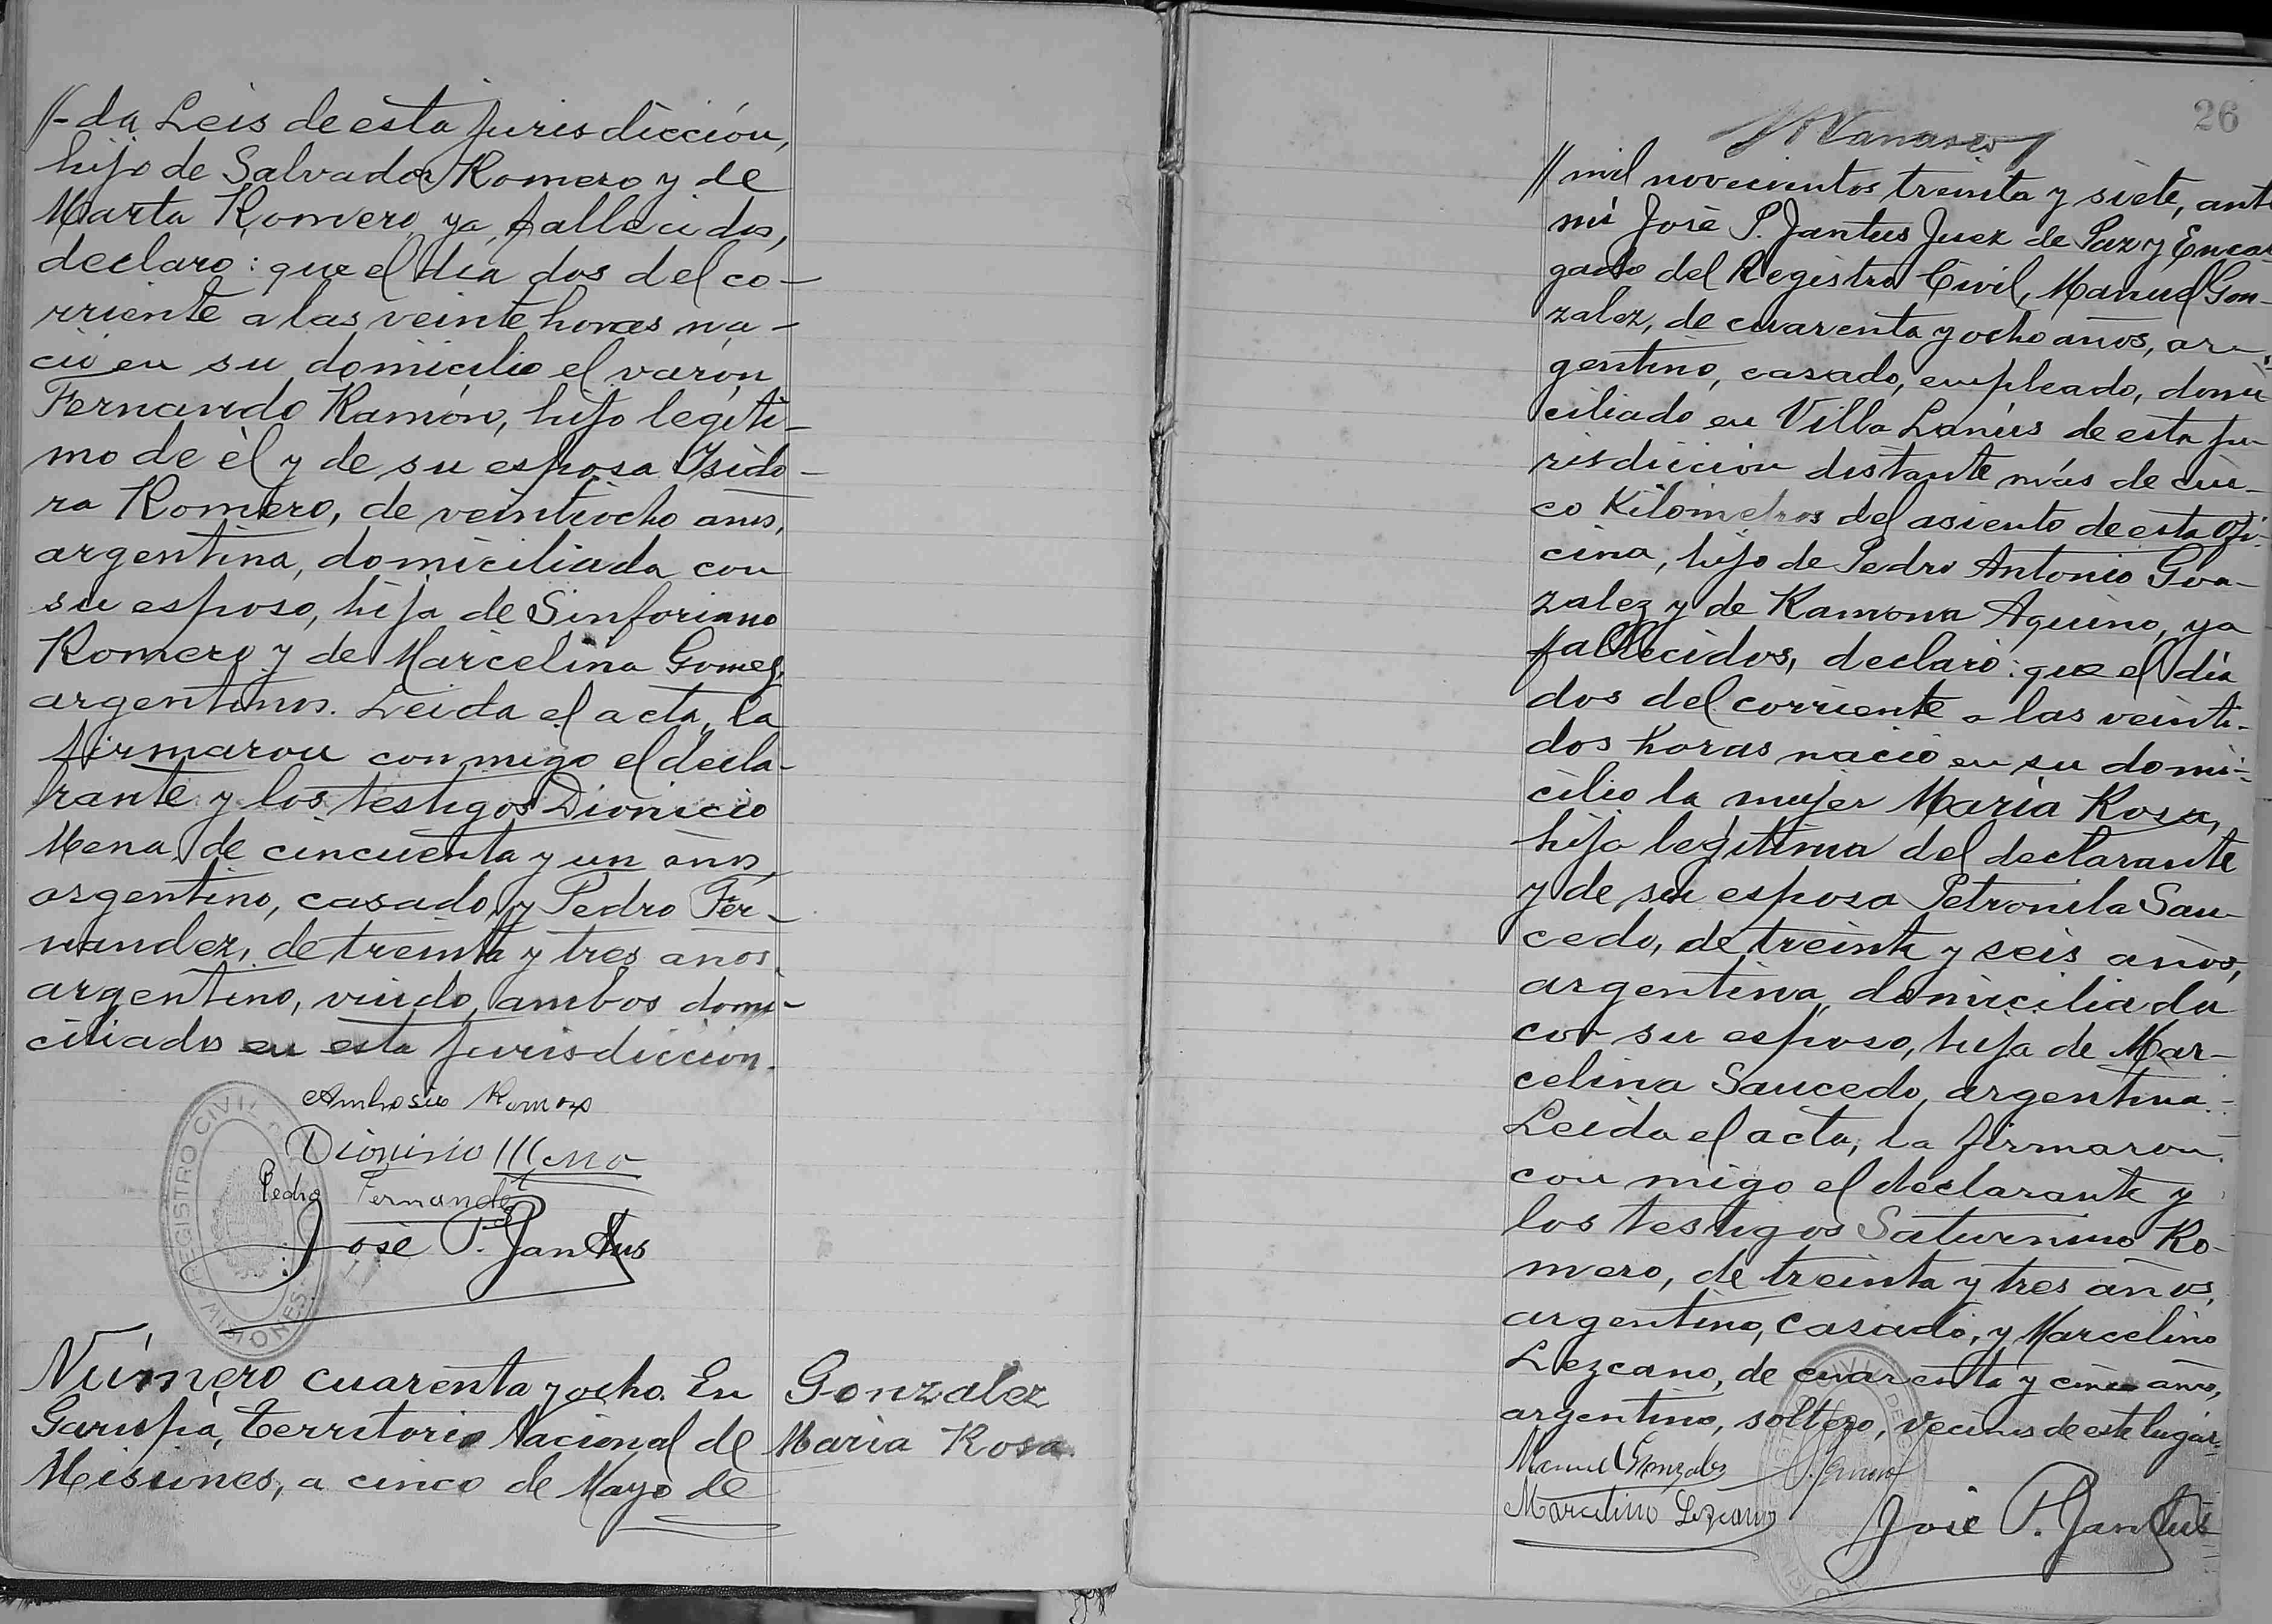 //-da Leis de esta jurisdicción,
hijo de Salvador Romero y de
Marta Romero, ya fallecidos,
declaro: que el día dos del co-
rriente a las veinte horas na-
ció en su domicilio el varón
Fernando Ramón, hijo legíti-
mo de èl y de su esposa Ysido-
ra Romero, de veintiocho años,
argentina, domiciliada con
su esposo, hija de Sinforiano
Romero y de Marcelina Gomez,
argentinos. Leida el acta, la
firmaron conmigo el decla-
rante y los testigos Dionicio
Mena, de cincuenta y un años,
argentino, casado, y Pedro Fer-
nandez, de treinta y tres años
argentino, viudo, ambos domi-
ciliados en esta jurisdiccion.
Ambrosio Romero
Dionisio Mena
Pedro Fernandez
José P. Jantus
REGISTRO CIVIL
MISIONES
Número cuarenta y ocho. En
Garupá, Territorio Nacional de
Misiones, a cinco de Mayo de
Gonzalez
Maria Rosa.
26
// mil novecientos treinta y siete, ante
mí José P. Jantus Juez de Paz y Encar-
gado del Registro Civil, Manuel Gon-
zalez, de cuarenta y ocho años, ar-
gentino, casado, empleado, domi
ciliado en Villa Lanús de esta ju-
risdiccion distante más de cin-
co Kilometros del asiento de esta Ofi-
cina, hijo de Pedro Antonio Gon-
zalez y de Ramona Aquino, ya
fallecidos, declaró: que el día
dos del corriente a las veinti-
dos horas nació en su domi-
cilio la mujer María Rosa,
hija legítima del declarante
y de su esposa Petronila Sau-
cedo, de treinta y seis años,
argentina, domiciliada
con su esposo, hija de Mar-
celina Saucedo, argentina.-
Leida el acta, la firmaron
con migo el declarante y
los testigos Saturnino Ro-
mero, de treinta y tres años,
argentino, casado, y Marcelino
Lezcano, de cuarenta y cinco años,
argentino, soltero, vecinos de este lugar.
Manuel Gonzalez
Marcelino Lezcano
José P. Jantus